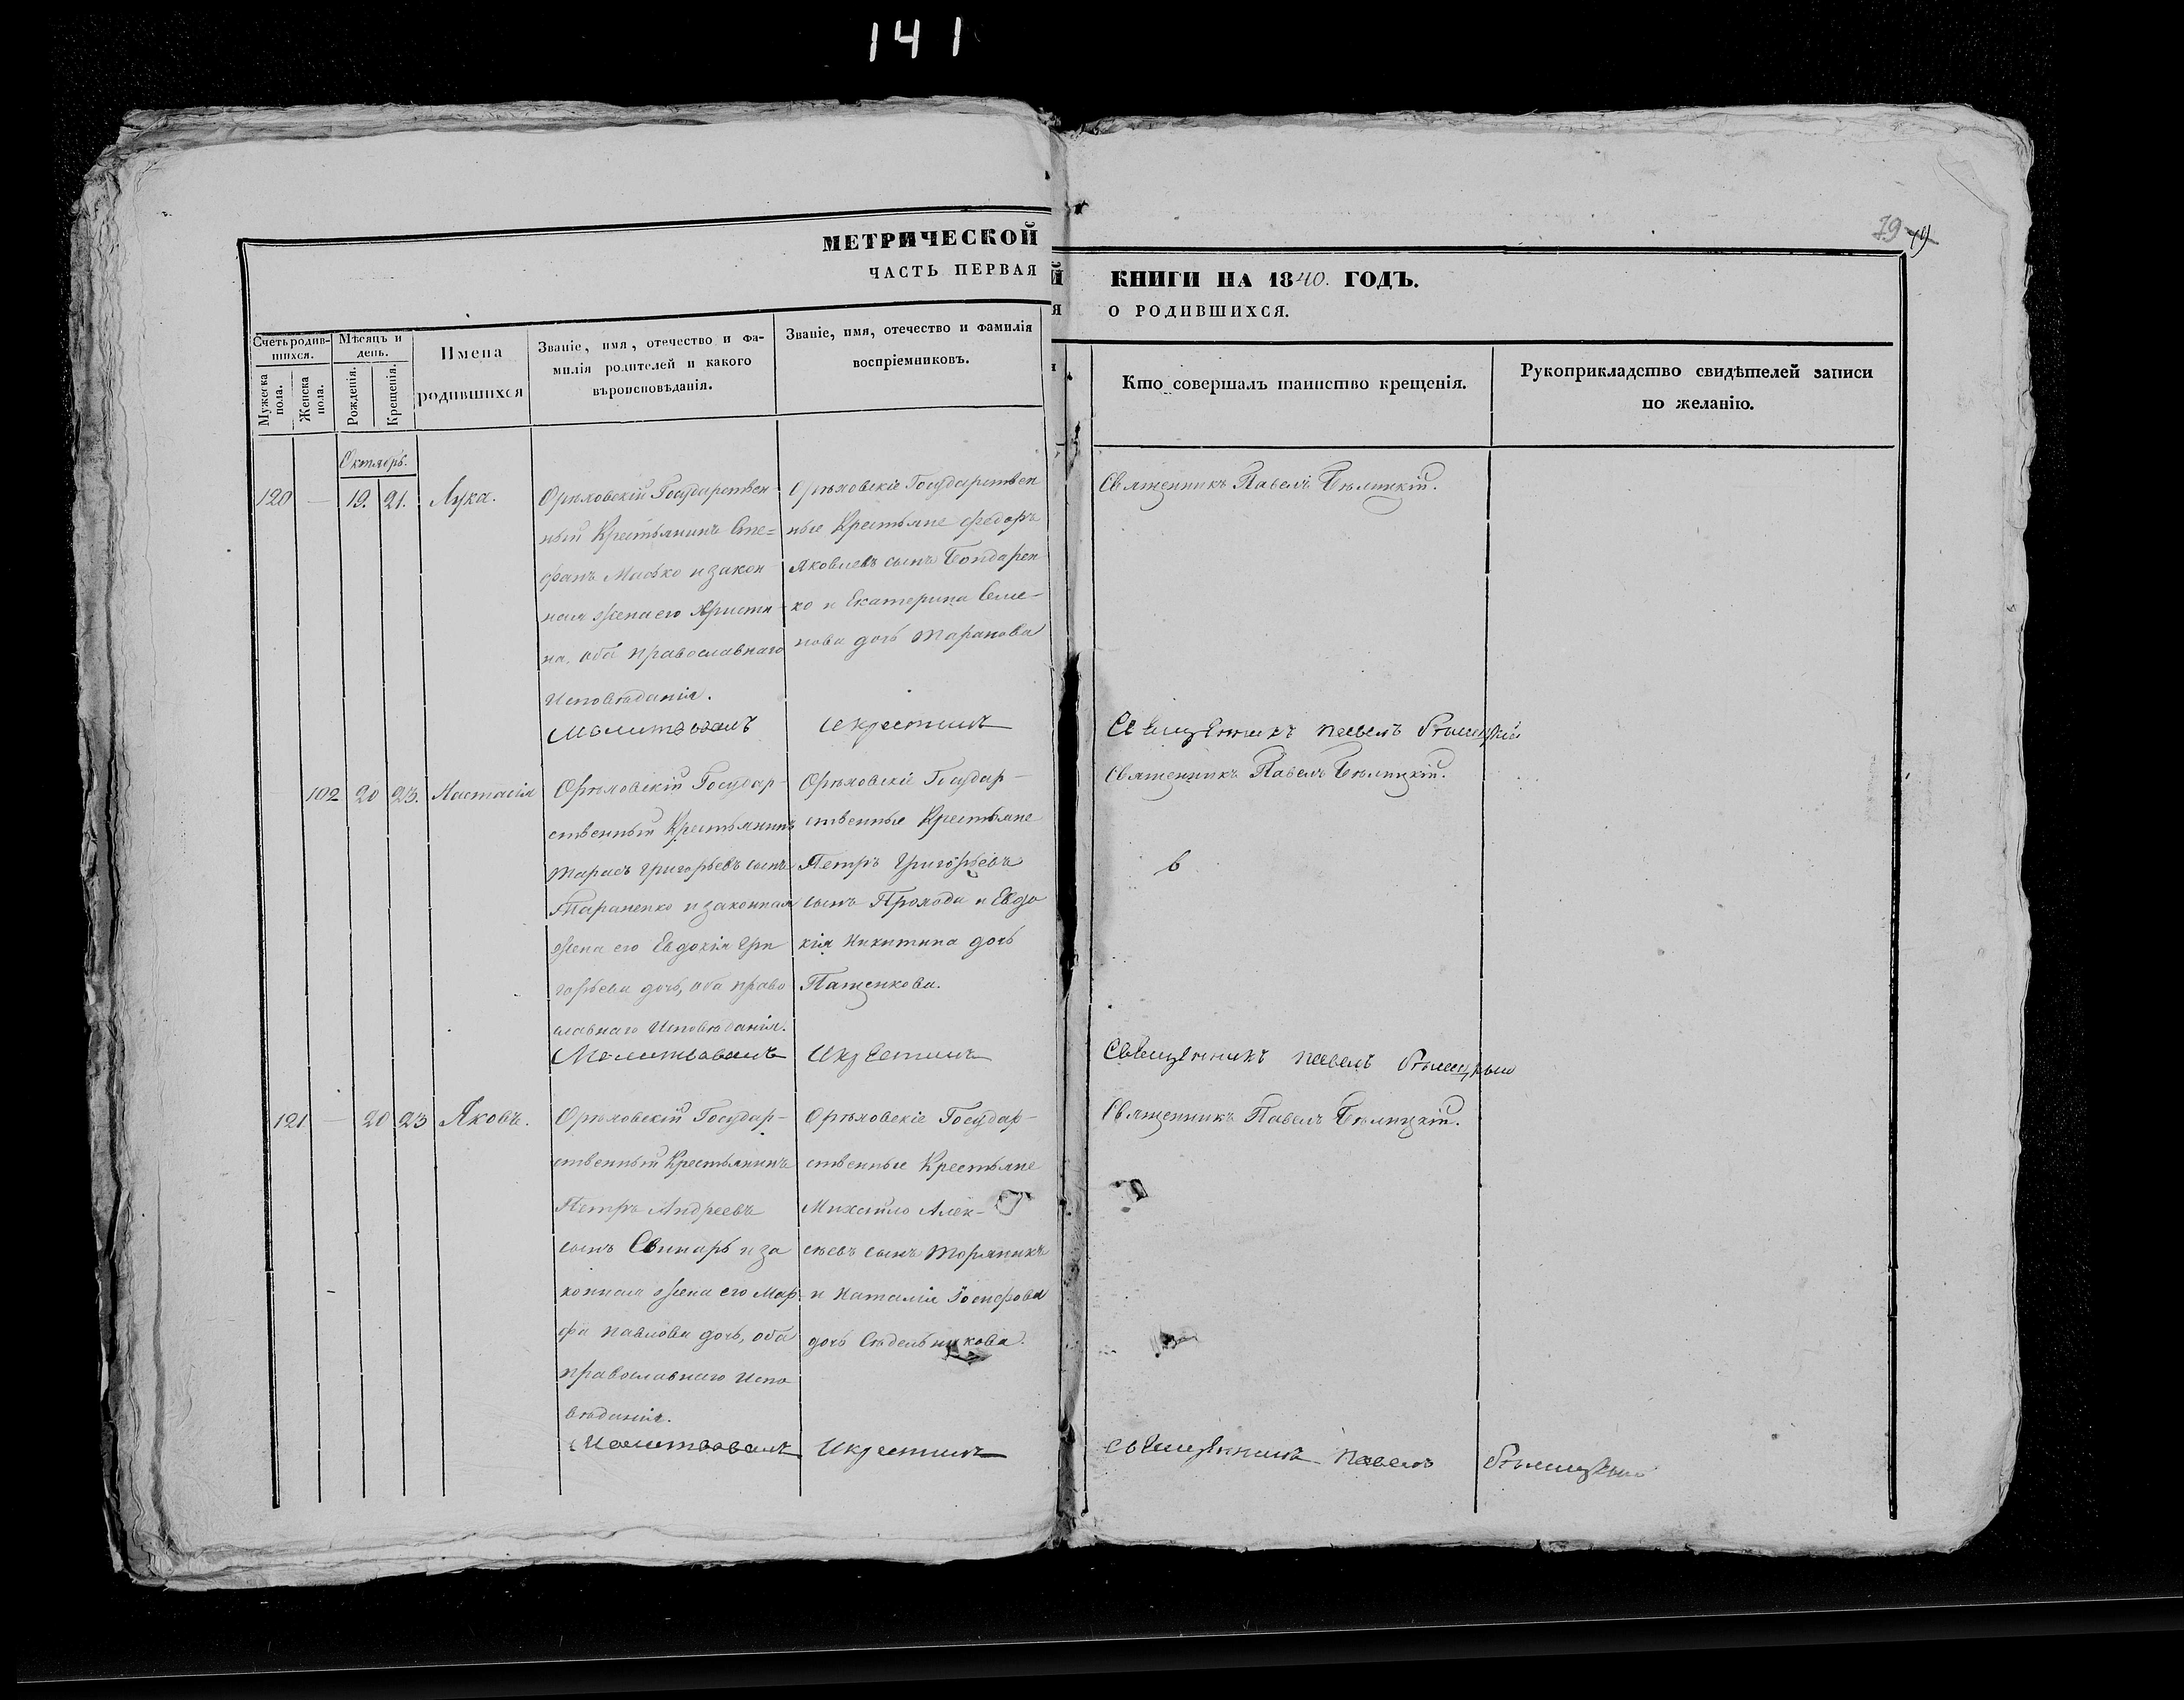 141
79
МЕТРИЧЕСКОЙ
ЧАСТЬ ПЕРВАЯ
КНИГИ НА 1840. ГОДЪ.
О РОДИВШИХСЯ.
Счетъ родив-
шихся.
Мужеска
пола.
Женска
пола.
Мѣсяцъ и
день.
Рожденія.
Крещенія.
Имена
родившихся
Званіе, имя, отечество и фа-
милія родителей и какого
вѣроисповѣданія.
Званіе, имя, отечество и фамилія
воспріемниковъ.
Кто совершалъ таинство крещенія.
Рукоприкладство свидѣтелей записи
по желанію.
Октябрь.
120 — 19. 21. Лука.
Орѣховскій Государствен
ный Крестьянинъ Сте=
фанъ Масько и закон
ная жена его Христи
на, оба православнаго
Исповѣданія.
Орѣховскіе Государствен
ные Крестьяне Федоръ
Яковлевъ сынъ Бондарен
ко и Екатерина Семе-
нова дочь Таранова
Священникъ Павелъ Бѣлицкій.
Молитвовалъ Икрестилъ Священникъ Павелъ Бѣлицкій
102 20 23. Настасія
Орѣховскій Государ-
ственный Крестьянинъ
Тарасъ Григорьевъ сынъ
Тараненко и законная
жена его Евдокія Гри
горьева дочь, оба право
славнаго Исповѣданія.
Орѣховскіе Государ-
ственные Крестьяне
Петръ Григорьевъ
сынъ Проходи и Евдо
кія Никитина дочь
Пащенкова.
Священникъ Павелъ Бѣлицкій.
Молитвовалъ Икрестилъ Священникъ Павелъ Бѣлицкій
121 — 20 23 Яковъ.
Орѣховскій Государ-
ственный Крестьянинъ
Петръ Андреевъ
сынъ Свинарь и за
конная жена его Мар
фа Павлова дочь, оба
православнаго Испо
вѣданія.
Орѣховскіе Государ-
ственные Крестьяне
Михайло Алек-
сѣевъ сынъ
и Наталія Іосифова
дочь Сѣдельникова.
Священникъ Павелъ Бѣлицкій.
Молитвовалъ Икрестилъ Священникъ Павелъ Бѣлицкій